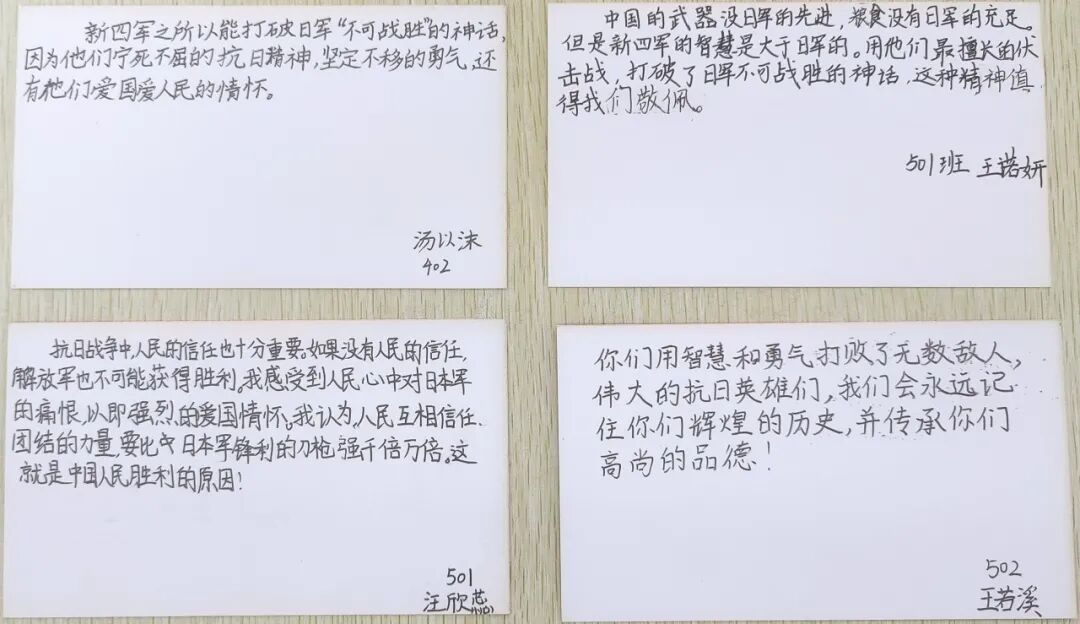 新四军之所以能打破日军“不可战胜”的神话,
因为他们宁死不屈的抗日精神,坚定不移的勇气,还
有他们爱国爱人民的情怀。
汤以沫
402
中国的武器没日军的先进,粮食没有日军的充足。
但是新四军的智慧是大于日军的。用他们最擅长的伏
击战,打破了日军不可战胜的神话,这种精神值
得我们敬佩。
501班 王诺妍
抗日战争中,人民的信任也十分重要。如果没有人民的信任,
解放军也不可能获得胜利。我感受到人民心中对日本军
的痛恨,以即强烈的爱国情怀。我认为,人民互相信任、
团结的力量,要比日本军锋利的刀枪强千倍万倍。这
就是中国人民胜利的原因!
501
汪欣蕊
你们用智慧和勇气打败了无数敌人,
伟大的抗日英雄们,我们会永远记
住你们辉煌的历史,并传承你们
高尚的品德!
502
王若溪